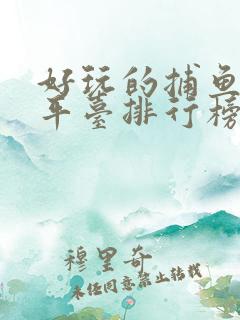 好玩的捕鱼
平臺排行榜
穆里奇
未任同意禁止转载